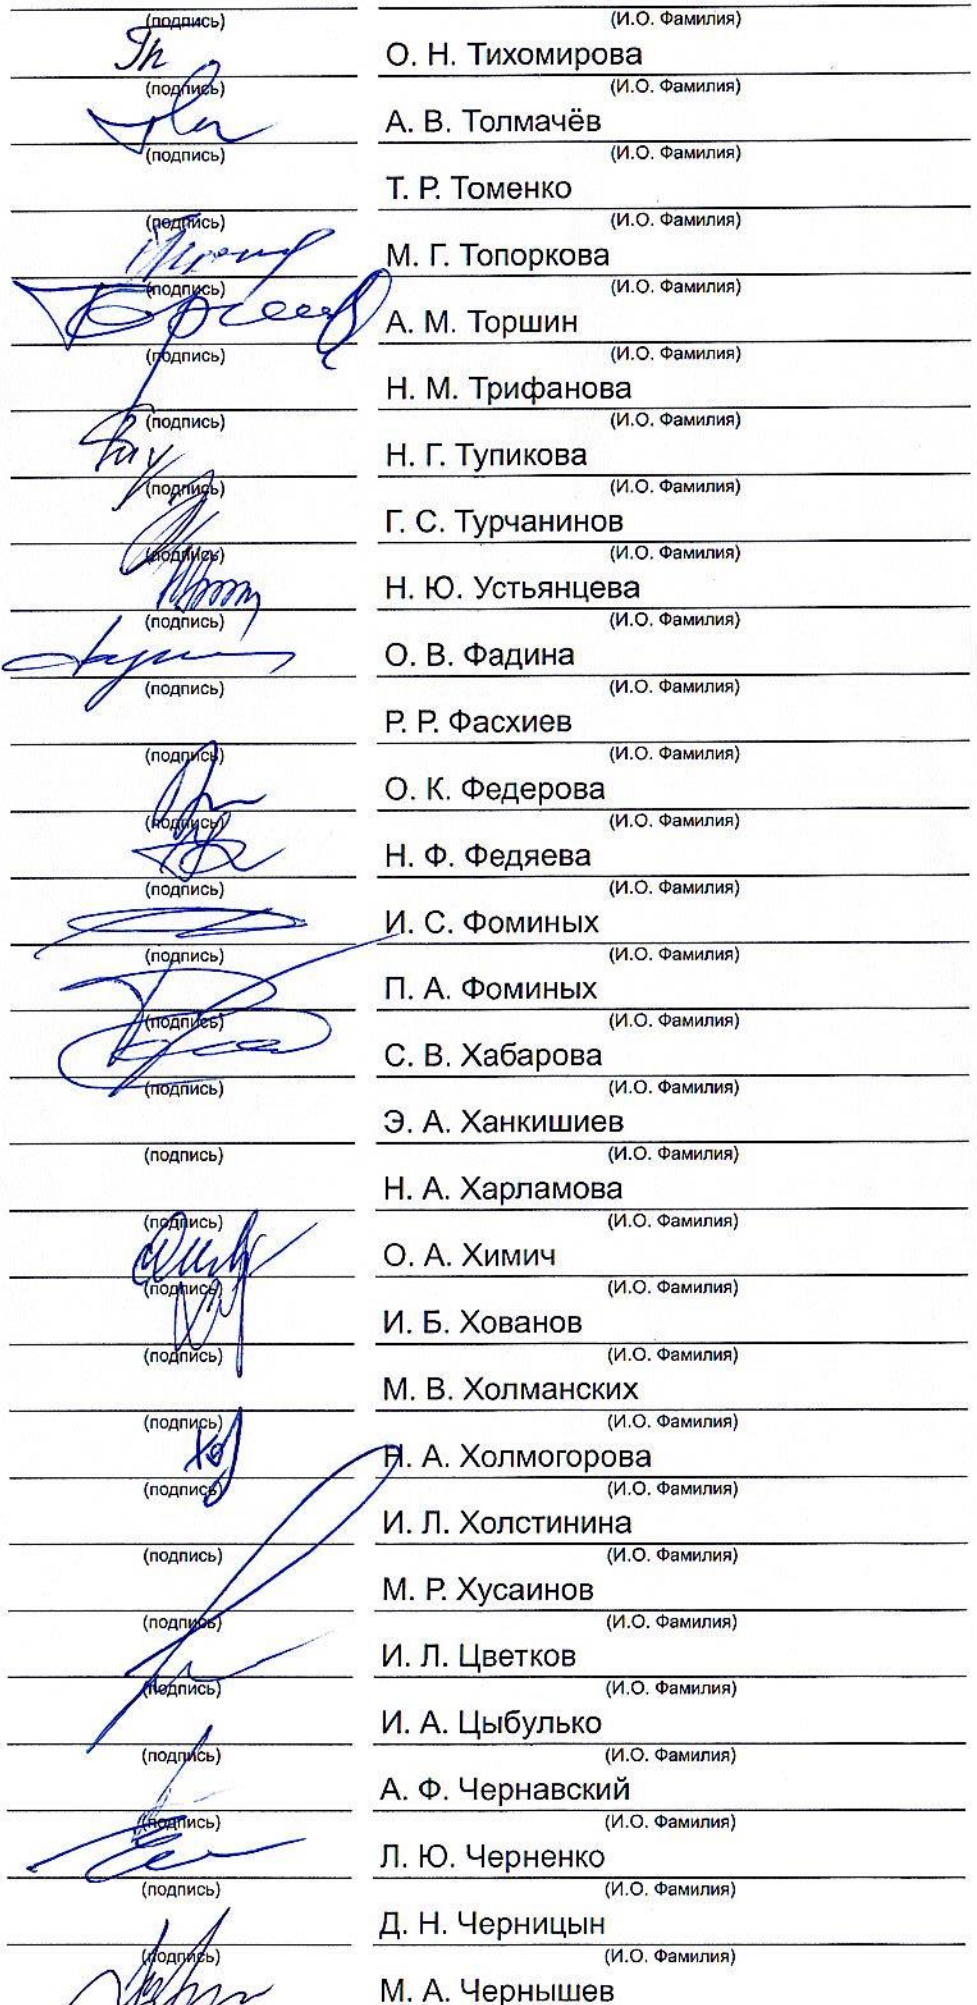 (подпись) (И.О. Фамилия)
О. Н. Тихомирова
(подпись) (И.О. Фамилия)
А. В. Толмачёв
(подпись) (И.О. Фамилия)
Т. Р. Томенко
(подпись) (И.О. Фамилия)
М. Г. Топоркова
(подпись) (И.О. Фамилия)
А. М. Торшин
(подпись) (И.О. Фамилия)
Н. М. Трифанова
(подпись) (И.О. Фамилия)
Н. Г. Тупикова
(подпись) (И.О. Фамилия)
Г. С. Турчанинов
(подпись) (И.О. Фамилия)
Н. Ю. Устьянцева
(подпись) (И.О. Фамилия)
О. В. Фадина
(подпись) (И.О. Фамилия)
Р. Р. Фасхиев
(подпись) (И.О. Фамилия)
О. К. Федерова
(подпись) (И.О. Фамилия)
Н. Ф. Федяева
(подпись) (И.О. Фамилия)
И. С. Фоминых
(подпись) (И.О. Фамилия)
П. А. Фоминых
(подпись) (И.О. Фамилия)
С. В. Хабарова
(подпись) (И.О. Фамилия)
Э. А. Ханкишиев
(подпись) (И.О. Фамилия)
Н. А. Харламова
(подпись) (И.О. Фамилия)
О. А. Химич
(подпись) (И.О. Фамилия)
И. Б. Хованов
(подпись) (И.О. Фамилия)
М. В. Холманских
(подпись) (И.О. Фамилия)
Н. А. Холмогорова
(подпись) (И.О. Фамилия)
И. Л. Холстинина
(подпись) (И.О. Фамилия)
М. Р. Хусаинов
(подпись) (И.О. Фамилия)
И. Л. Цветков
(подпись) (И.О. Фамилия)
И. А. Цыбулько
(подпись) (И.О. Фамилия)
А. Ф. Чернавский
(подпись) (И.О. Фамилия)
Л. Ю. Черненко
(подпись) (И.О. Фамилия)
Д. Н. Черницын
(подпись) (И.О. Фамилия)
М. А. Чернышев